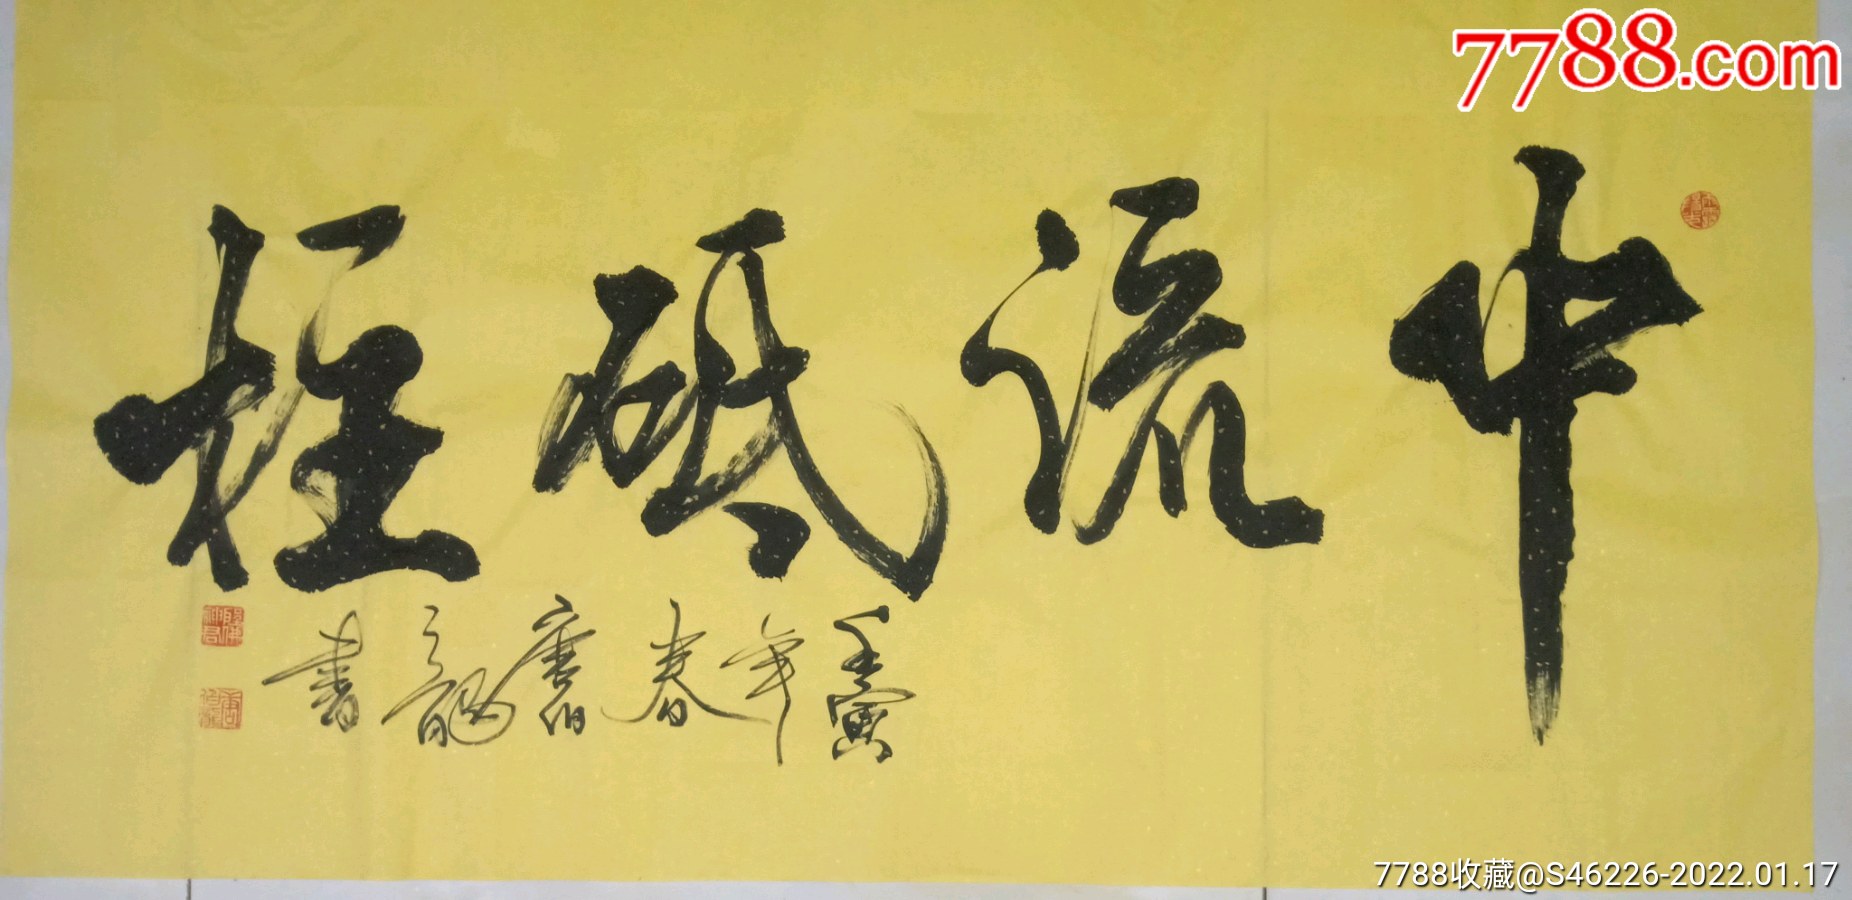 7788.com
中流砥柱
壬寅年春唐伯韻書
7788收藏@S46226-2022.01.17